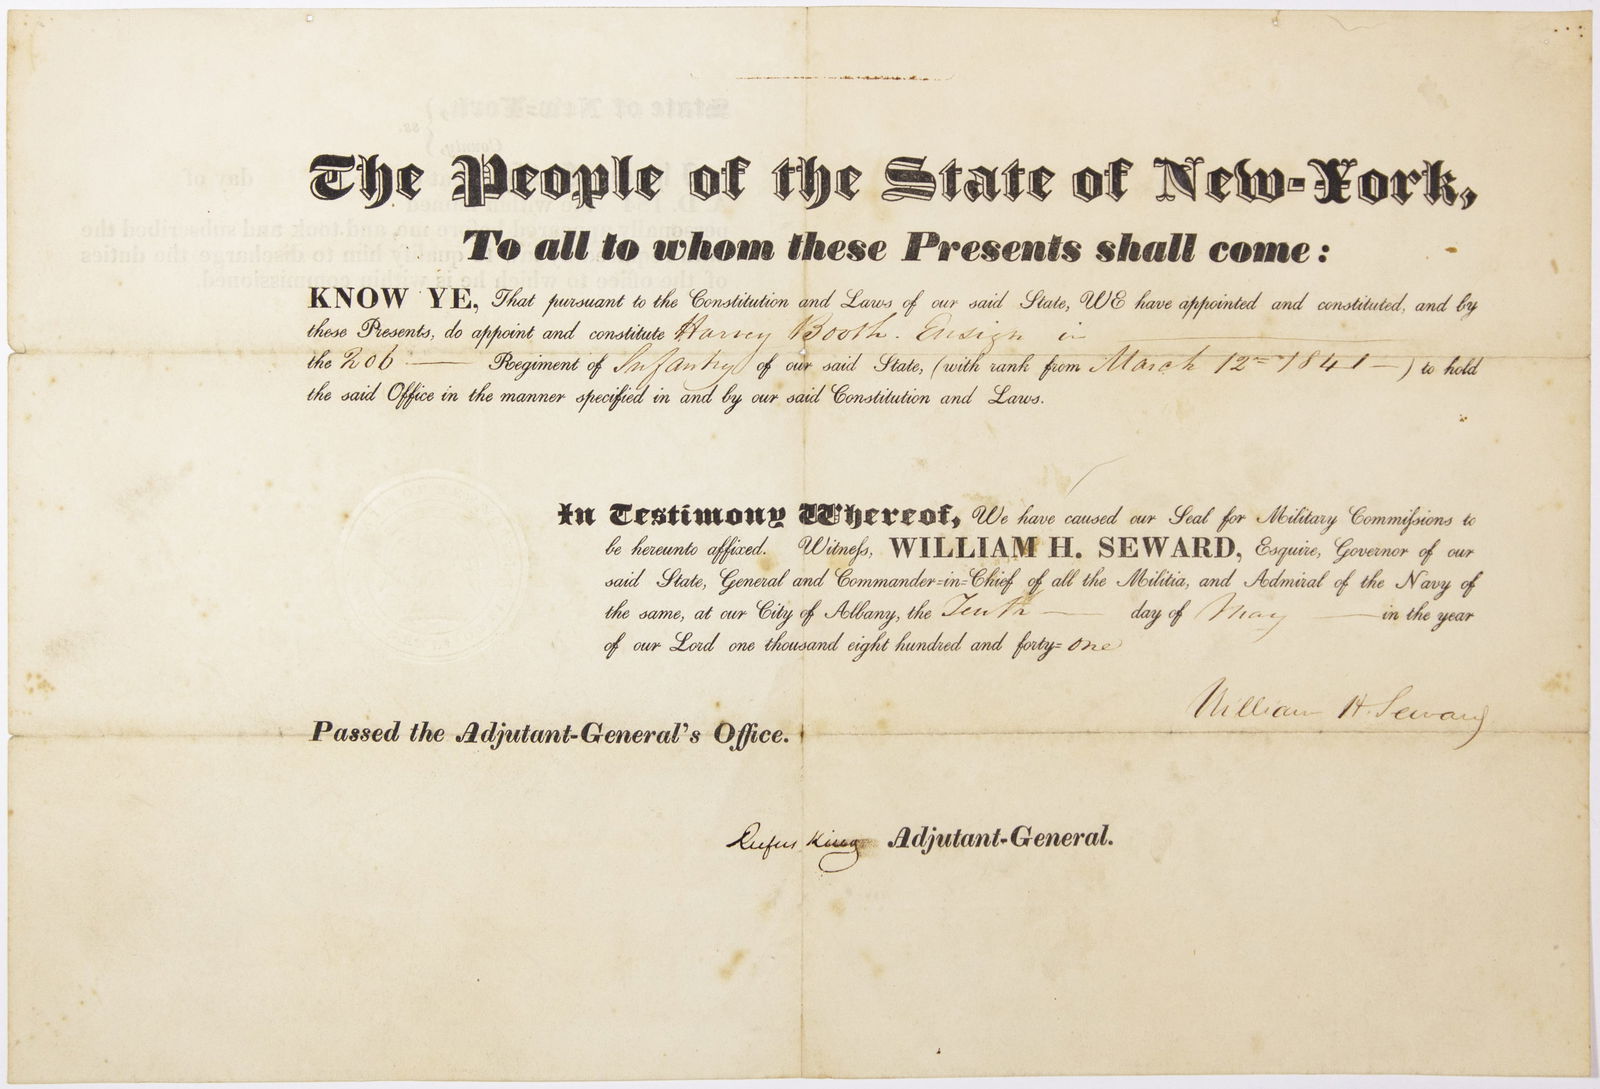 The People of the State of New-York,
To all to whom these Presents shall come:
KNOW YE, That pursuant to the Constitution and Laws of our said State, WE have appointed and constituted, and by
these Presents, do appoint and constitute Harvey Booth. Ensign in
the 206 — Regiment of Infantry of our said State, (with rank from March 12 1841 —) to hold
the said Office in the manner specified in and by our said Constitution and Laws.
In Testimony Whereof, We have caused our Seal for Military Commiſsions to
be hereunto affixed. Witneſs, WILLIAM H. SEWARD, Esquire, Governor of our
said State, General and Commander=in=Chief of all the Militia, and Admiral of the Navy of
the same, at our City of Albany, the Tenth — day of May — in the year
of our Lord one thousand eight hundred and forty=one
William H. Seward
Passed the Adjutant-General's Office.
Rufus King Adjutant-General.